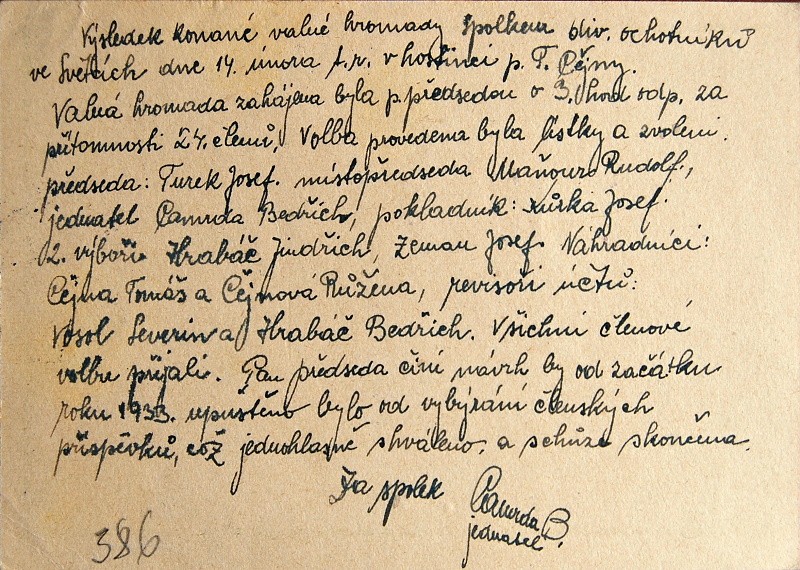 Výsledek konané valné hromady Spolkem div. ochotníků
ve Světcích dne 14. února t.r. v hostinci p. T. Čejny.
Valná hromada zahájena byla p. předsedou o 3. hod odp. za
přítomnosti 24. členů, Volba provedena byla lístky a zvoleni.
předseda: Turek Josef. místopředseda Maňour Rudolf,
jednatel Camrda Bedřich, pokladník: Kůrka Josef.
2. výboři. Hrabáč Jindřich, Zeman Josef. Náhradníci:
Čejna Tomáš a Čejnová Růžena, revisoři účtů:
Vosol Severin a Hrabáč Bedřich. Všichni členové
volbu přijali. Pan předseda činí návrh by od začátku
roku 1933. upuštěno bylo od vybýrání členských
příspěvků, což jednohlasně shváleno. a schůze skončena.
Za spolek Camrda B.
jednatel.
386